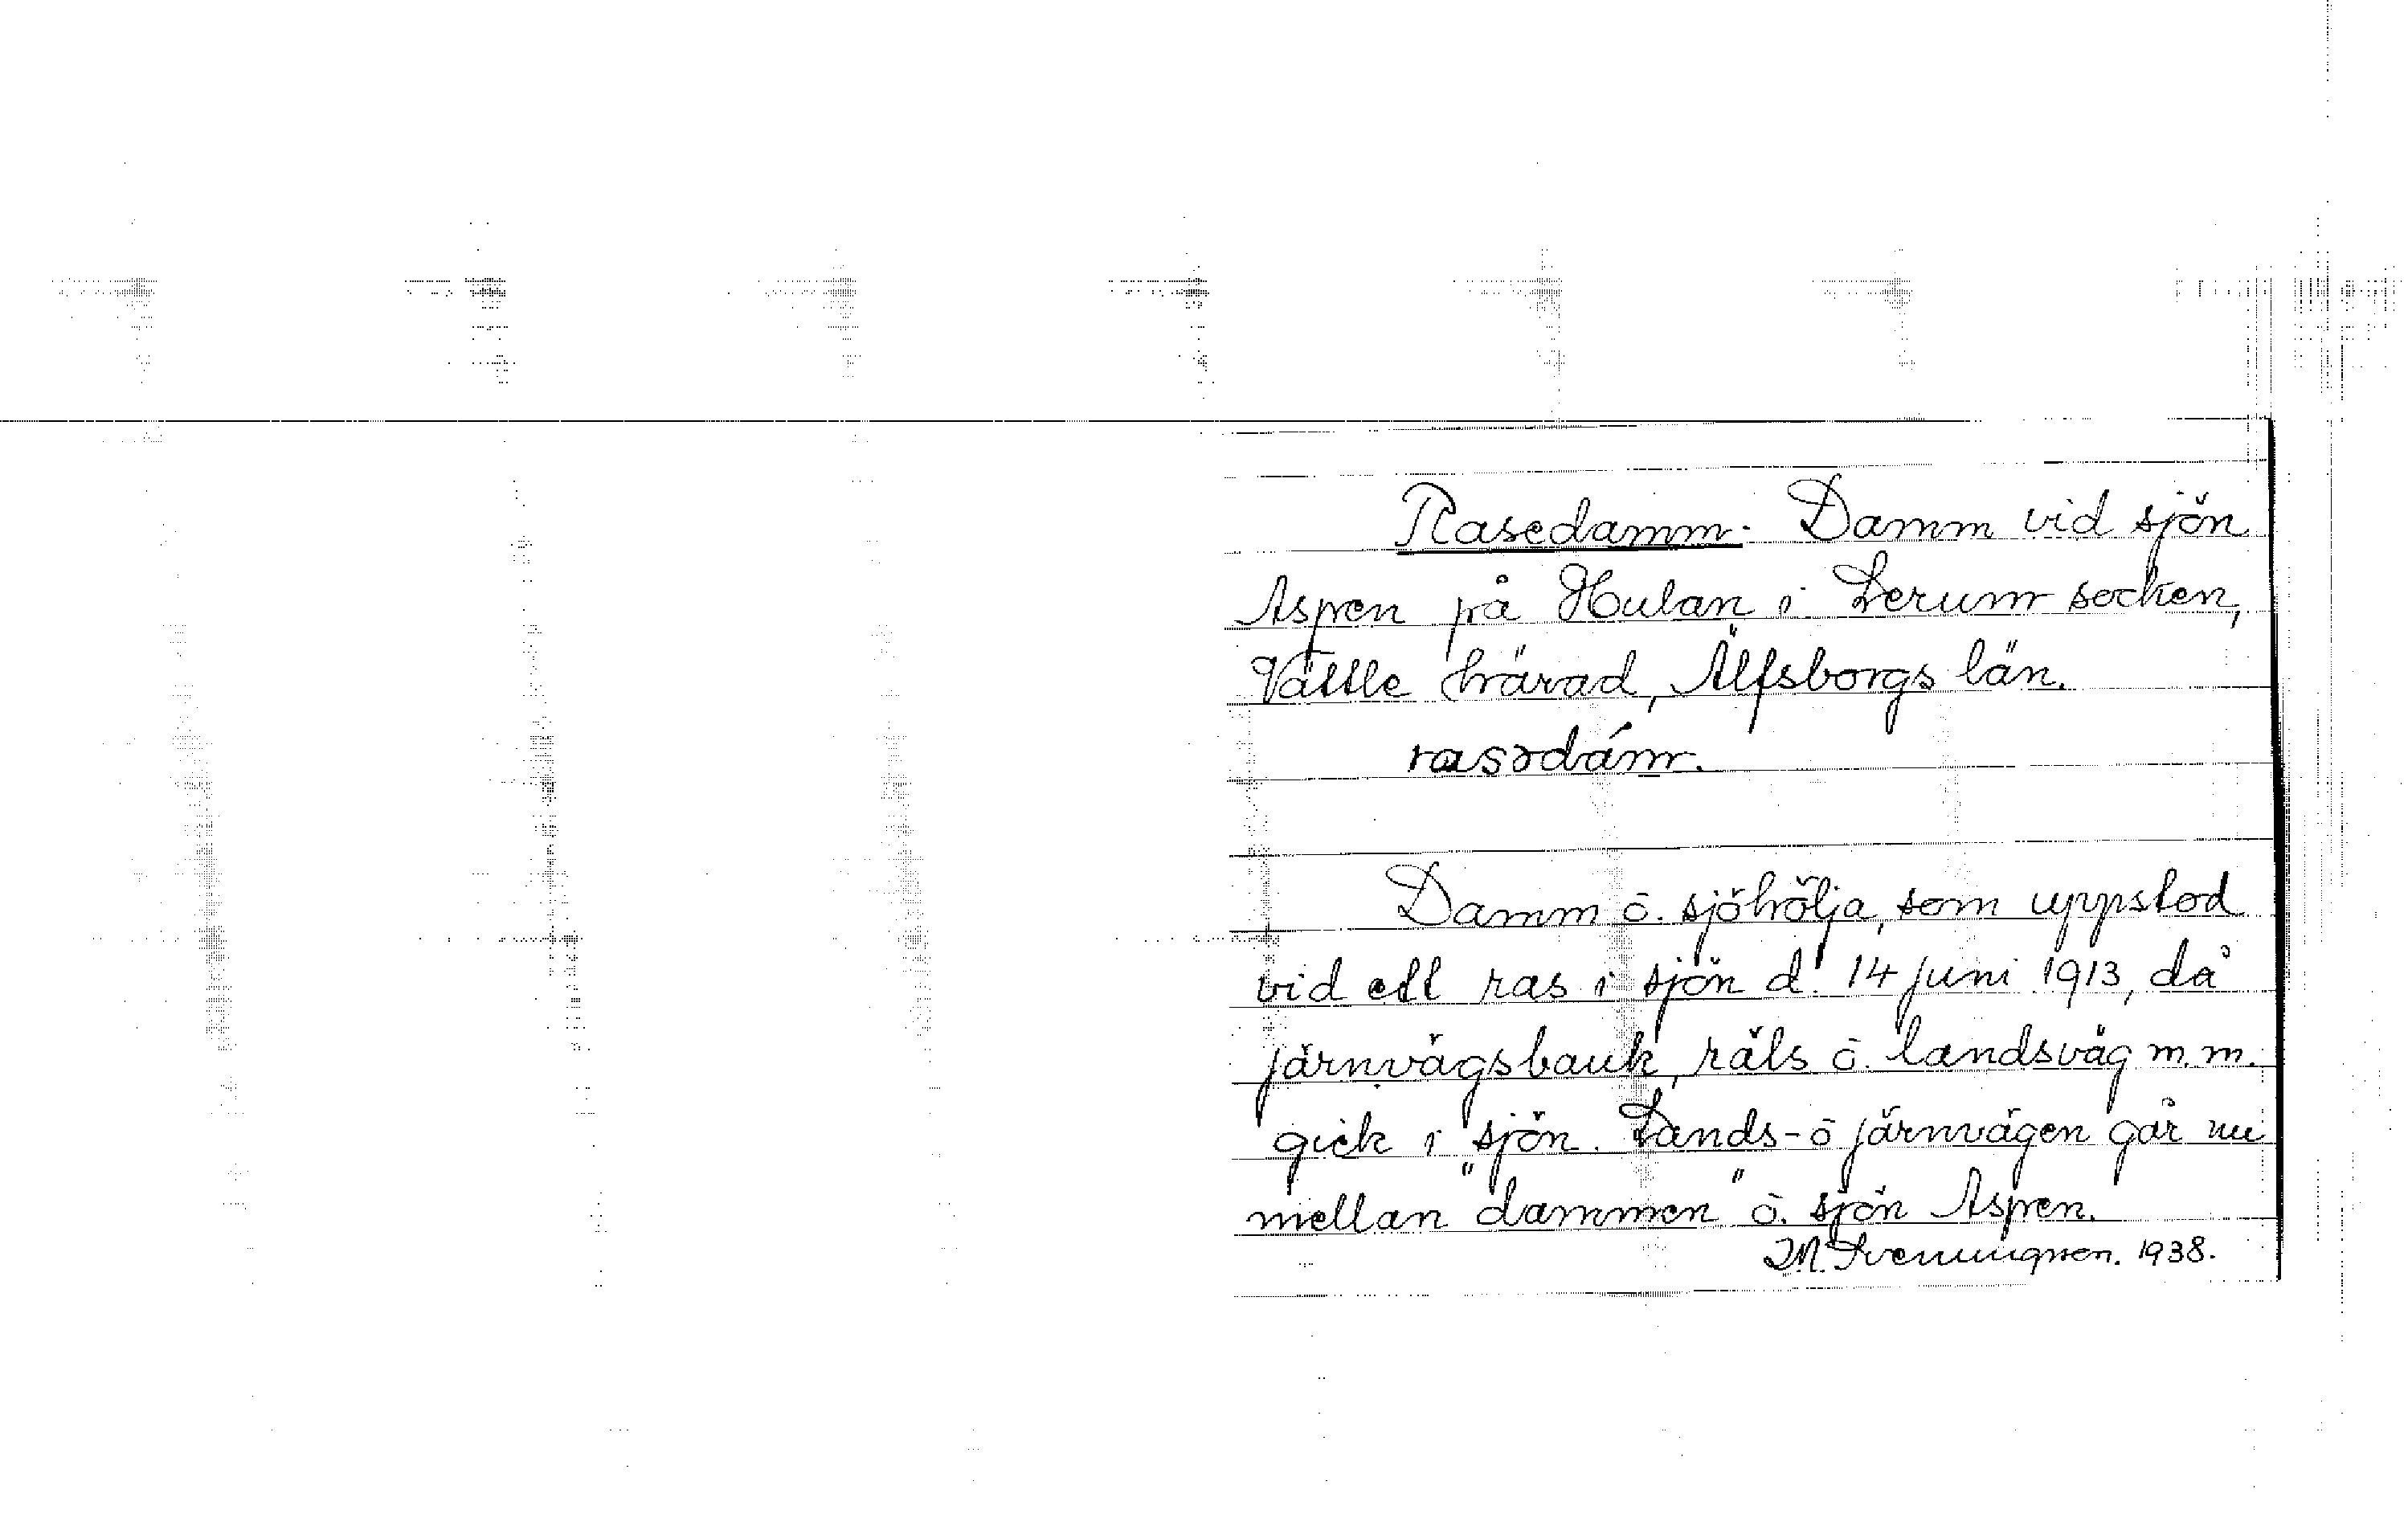 Rasedamm. Damm vid sjön
Aspen på Hulan i Lerum socken,
Vättle härad, Älfsborgs län.
rasədám.
Damm o. sjöhölja, som uppstod
vid ett ras i sjön d. 14 juni 1913, då
järnvägsbank, räls o. landsväg m.m.
gick i sjön. Lands- o järnvägen går nu
mellan "dammen" o. sjön Aspen.
J.M. Svenningson. 1938.